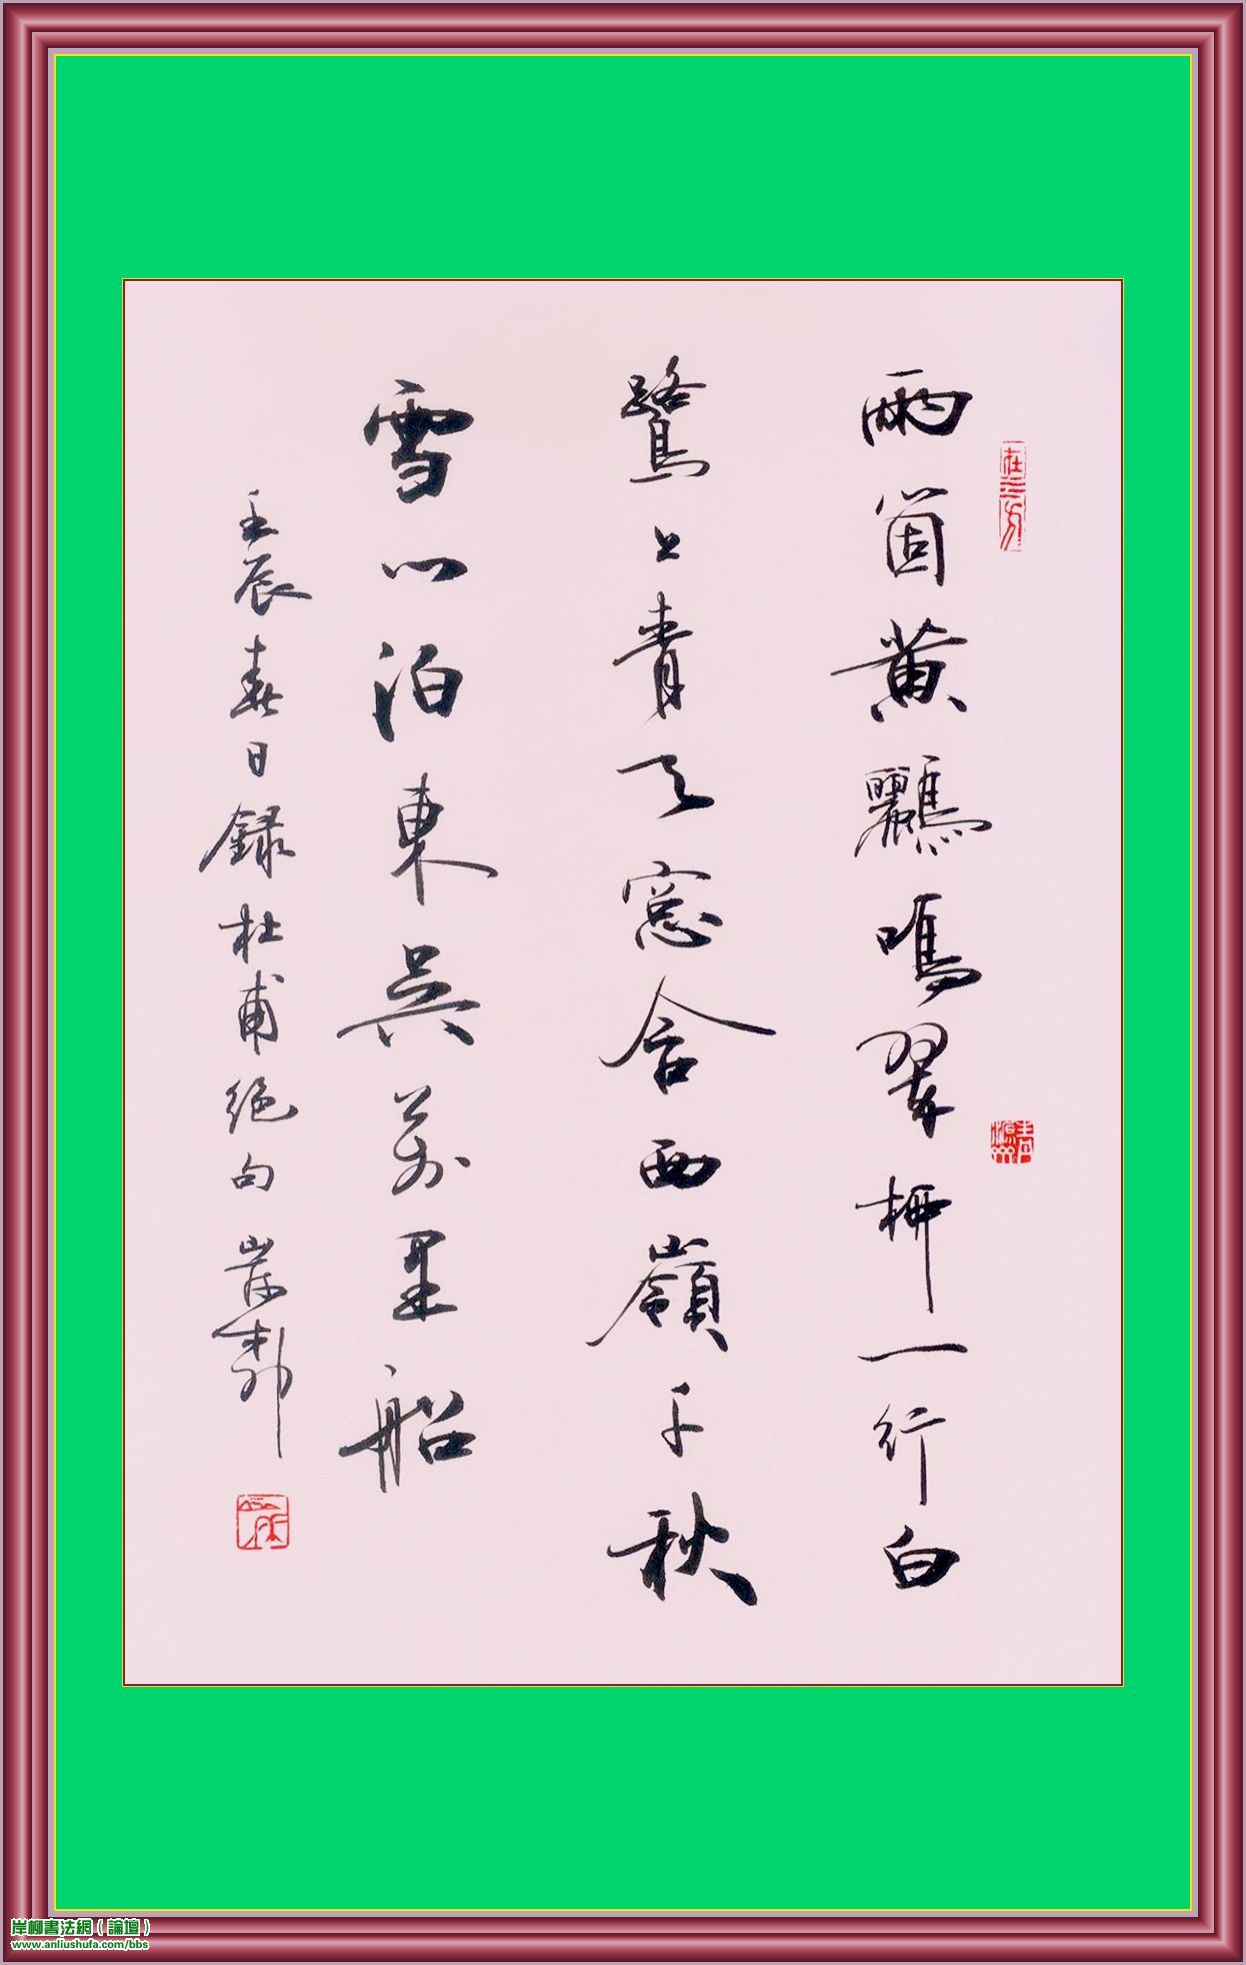 兩箇黄鸝鳴翠柳一行白
鷺上青天窓含西嶺千秋
雪門泊東吳萬里船
壬辰春日録杜甫絕句岸柳
岸柳書法網（論壇）
www.anliushufa.com/bbs